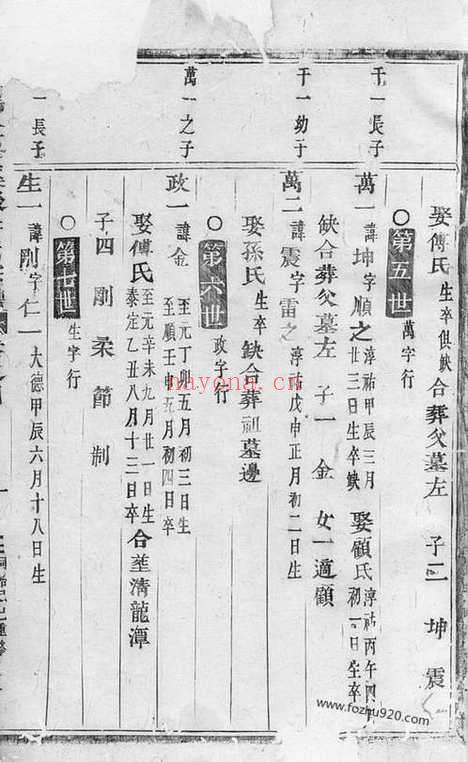 娶傅氏 生卒俱缺 合葬父墓左 子二 坤 震
○第五世 萬字行
千一長子
萬一 諱坤字順之 淳祐甲辰三月廿三日生卒缺 娶顧氏 淳祐丙午四初一日生卒
缺合葬父墓左 子一 金 女一適顧
千一幼子
萬二 諱震字雷之 淳祐戊申正月初二日生
娶孫氏 生卒缺合葬祖墓邊
○第六世 政字行
萬一之子
政一 諱金 至元丁卯五月初三日生 至順壬申五月初四日卒
娶傅氏 至元辛未九月廿一日生 泰定乙丑八月十三日卒 合塟清龍潭
子四 剛 柔 節 制
○第七世 生字行
一長子
生一 諱剛字仁一 大德甲辰六月十八日生
nayona.cn
www.fozhu920.com